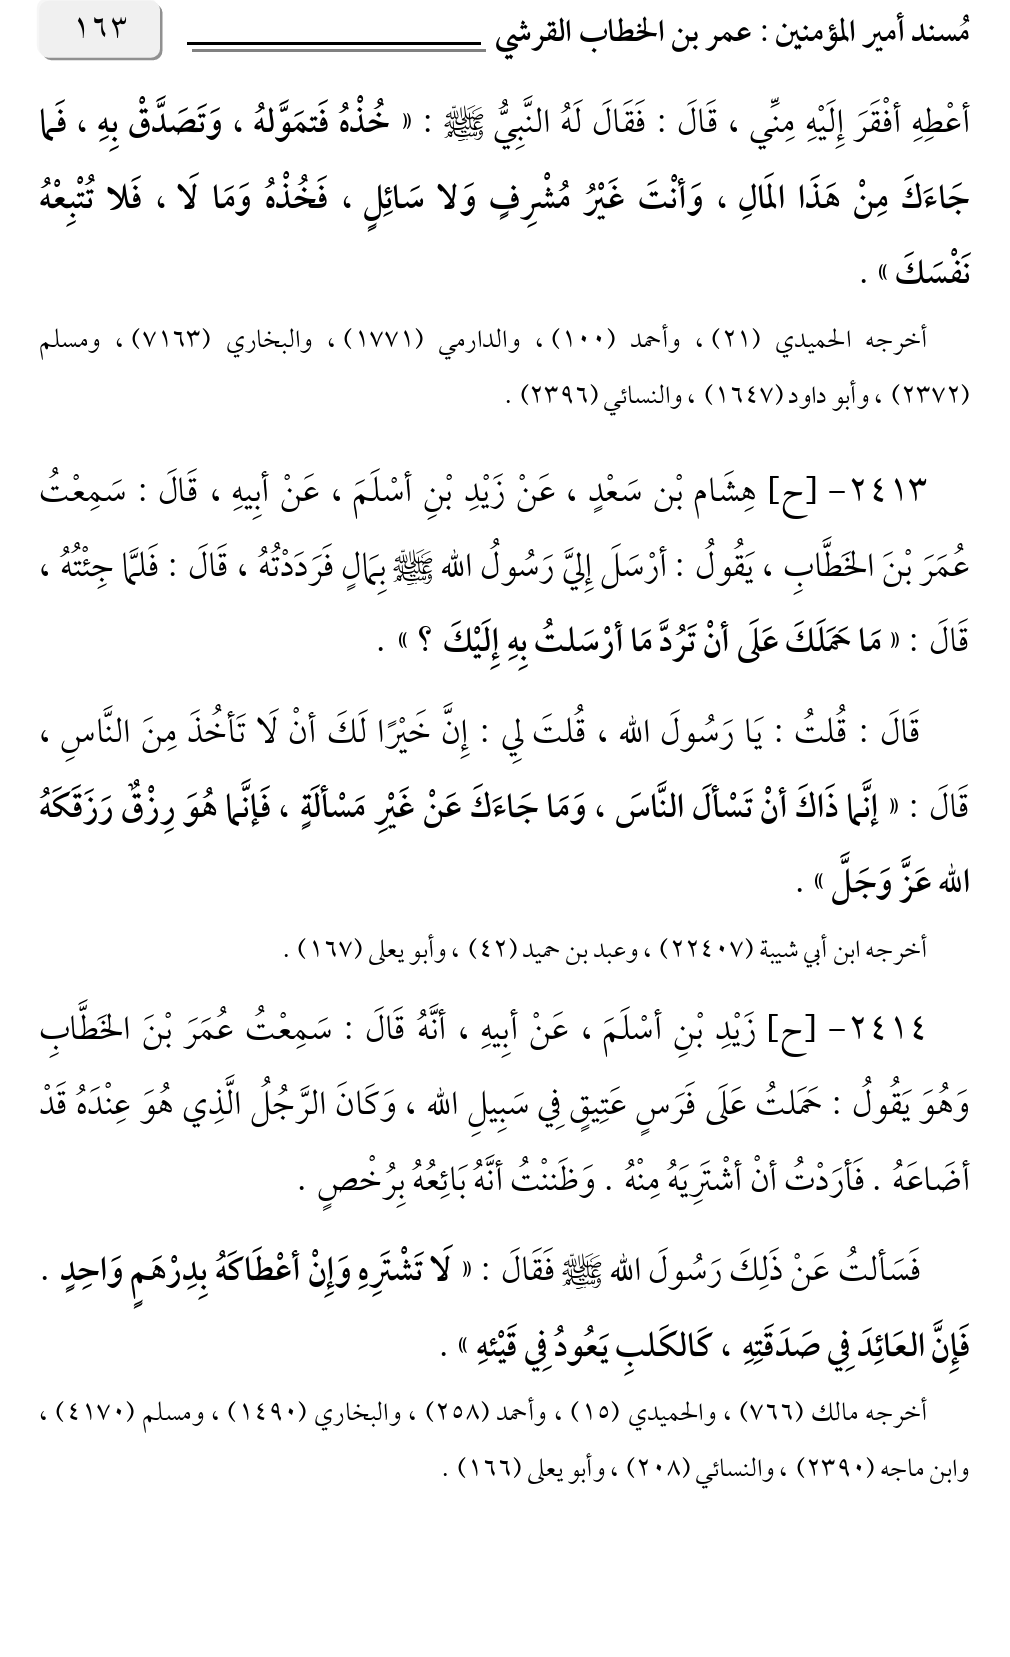 مُسند أمير المؤمنين : عمر بن الخطاب القرشي ١٦٣
أعْطِهِ أفْقَرَ إِلَيْهِ مِنِّي ، قَالَ : فَقَالَ لَهُ النَّبِيُّ ﷺ : « خُذْهُ فَتمَوَّلهُ ، وَتَصَدَّقْ بِهِ ، فَما
جَاءَكَ مِنْ هَذَا المَالِ ، وَأنْتَ غَيْرُ مُشْرِفٍ وَلا سَائِلٍ ، فَخُذْهُ وَمَا لَا ، فَلا تُتْبِعْهُ
نَفْسَكَ » .
أخرجه الحميدي (٢١) ، وأحمد (١٠٠) ، والدارمي (١٧٧١) ، والبخاري (٧١٦٣) ، ومسلم
(٢٣٧٢) ، وأبو داود (١٦٤٧) ، والنسائي (٢٣٩٦) .
٢٤١٣- [ح] هِشَام بْن سَعْدٍ ، عَنْ زَيْدِ بْنِ أسْلَمَ ، عَنْ أبِيهِ ، قَالَ : سَمِعْتُ
عُمَرَ بْنَ الخَطَّابِ ، يَقُولُ : أرْسَلَ إِليَّ رَسُولُ الله ﷺ بِمَالٍ فَرَدَدْتُهُ ، قَالَ : فَلمَّا جِئْتُهُ ،
قَالَ : « مَا حَمَلَكَ عَلَى أنْ تَرُدَّ مَا أرْسَلتُ بِهِ إِلَيْكَ ؟ » .
قَالَ : قُلتُ : يَا رَسُولَ الله ، قُلتَ لِي : إِنَّ خَيْرًا لَكَ أنْ لَا تَأخُذَ مِنَ النَّاسِ ،
قَالَ : « إنَّما ذَاكَ أنْ تَسْألَ النَّاسَ ، وَمَا جَاءَكَ عَنْ غَيْرِ مَسْألَةٍ ، فَإنَّما هُوَ رِزْقٌ رَزَقَكَهُ
الله عَزَّ وَجَلَّ » .
أخرجه ابن أبي شيبة (٢٢٤٠٧) ، وعبد بن حميد (٤٢) ، وأبو يعلى (١٦٧) .
٢٤١٤- [ح] زَيْدِ بْنِ أسْلَمَ ، عَنْ أبِيهِ ، أنَّهُ قَالَ : سَمِعْتُ عُمَرَ بْنَ الخَطَّابِ
وَهُوَ يَقُولُ : حَمَلتُ عَلَى فَرَسٍ عَتِيقٍ فِي سَبِيلِ الله ، وَكَانَ الرَّجُلُ الَّذِي هُوَ عِنْدَهُ قَدْ
أضَاعَهُ . فَأرَدْتُ أنْ أشْتَرِيَهُ مِنْهُ . وَظَننْتُ أنَّهُ بَائِعُهُ بِرُخْصٍ .
فَسَألتُ عَنْ ذَلِكَ رَسُولَ الله ﷺ فَقَالَ : « لَا تَشْتَرِهِ وَإِنْ أعْطَاكَهُ بِدِرْهَمٍ وَاحِدٍ .
فَإِنَّ العَائِدَ فِي صَدَقَتِهِ ، كَالكَلبِ يَعُودُ فِي قَيْئهِ » .
أخرجه مالك (٧٦٦) ، والحميدي (١٥) ، وأحمد (٢٥٨) ، والبخاري (١٤٩٠) ، ومسلم (٤١٧٠) ،
وابن ماجه (٢٣٩٠) ، والنسائي (٢٠٨) ، وأبو يعلى (١٦٦) .